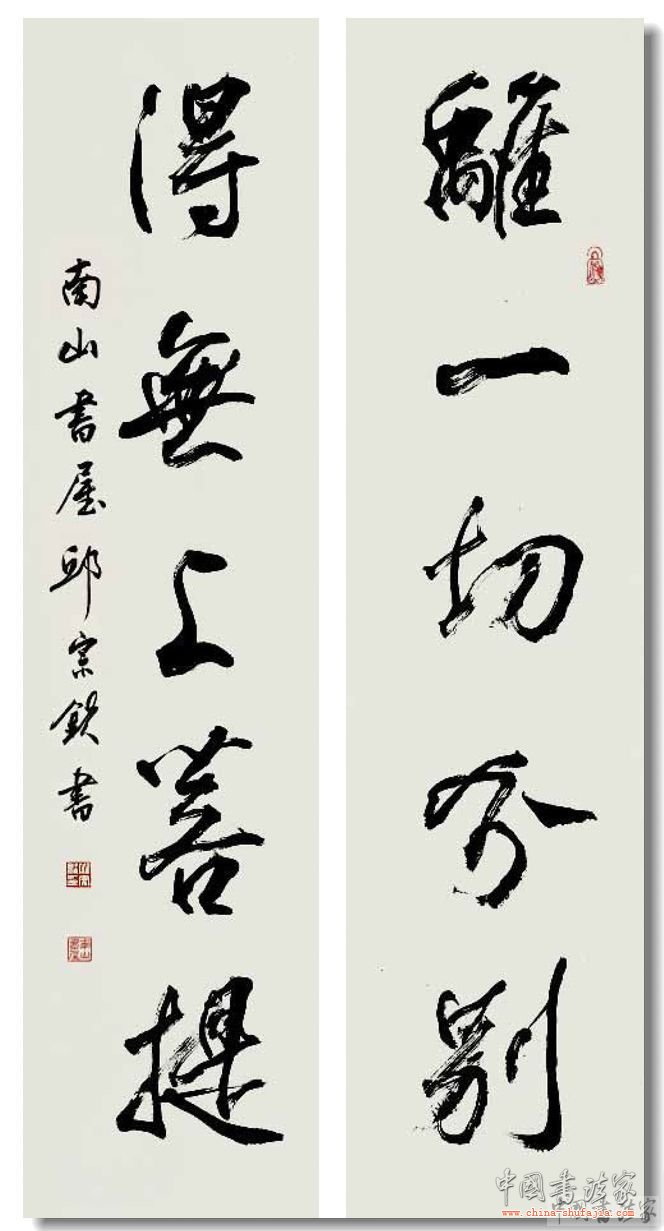 離一切分別
得無上菩提
南山書屋邱宗鉄書
中国书法家
www.china-shufajia.com